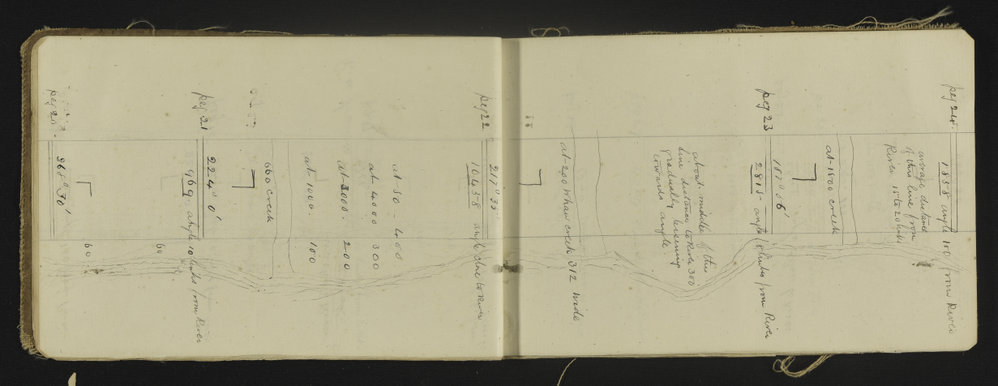 peg 24
1858 angle 150 from River
average distance
of this line from
River 15 to 20 links
at 1500 creek
peg 23
187° 06'
2815 angle 15 links from River
about middle of this
line distance to River 300
gradually lessening
towards angle
at 200 Whau creek 312 wide
peg 22
10458 angle close to River
at 50 - 400
at 4000 300
at 3000 200
at 1000 100
660 creek
peg 21
224° 0'
969 angle 10 links from River
60
60
265° 30'